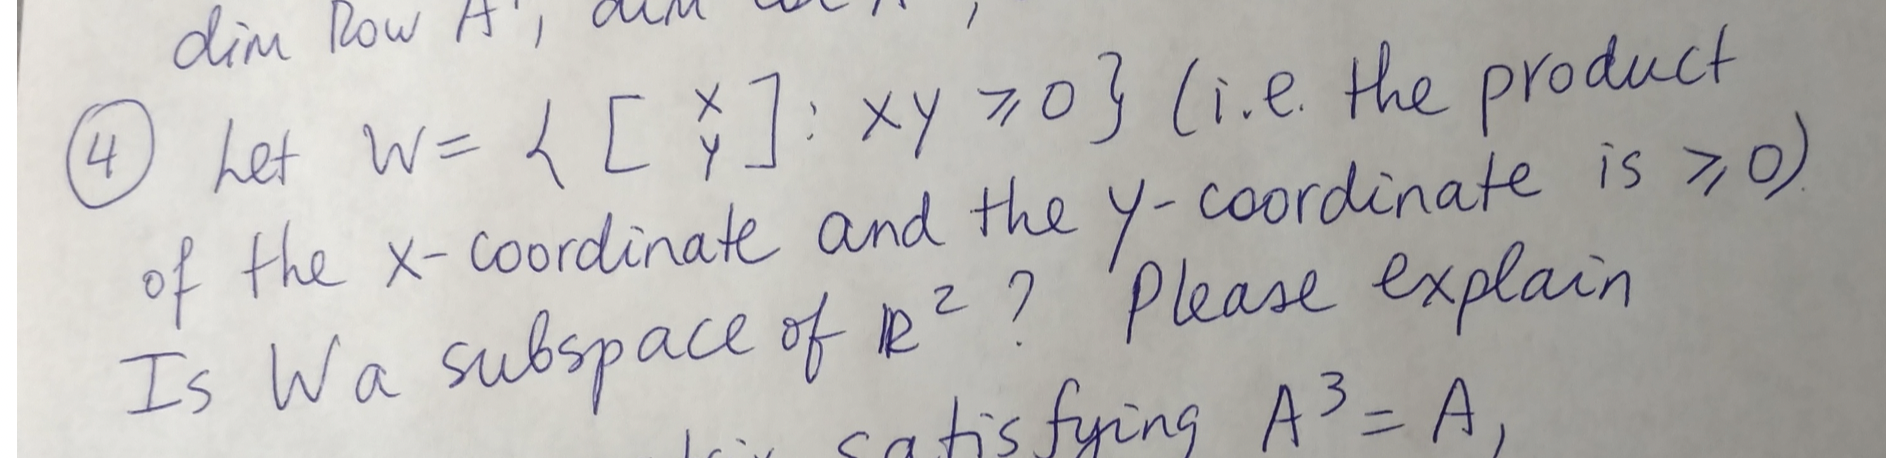 dim Row A
④ Let W= { [ x y ] : xy ⩾ 0 } (i.e. the product
of the x-coordinate and the y-coordinate is ⩾ 0)
Is W a subspace of ℝ² ? Please explain
satisfying A³ = A,